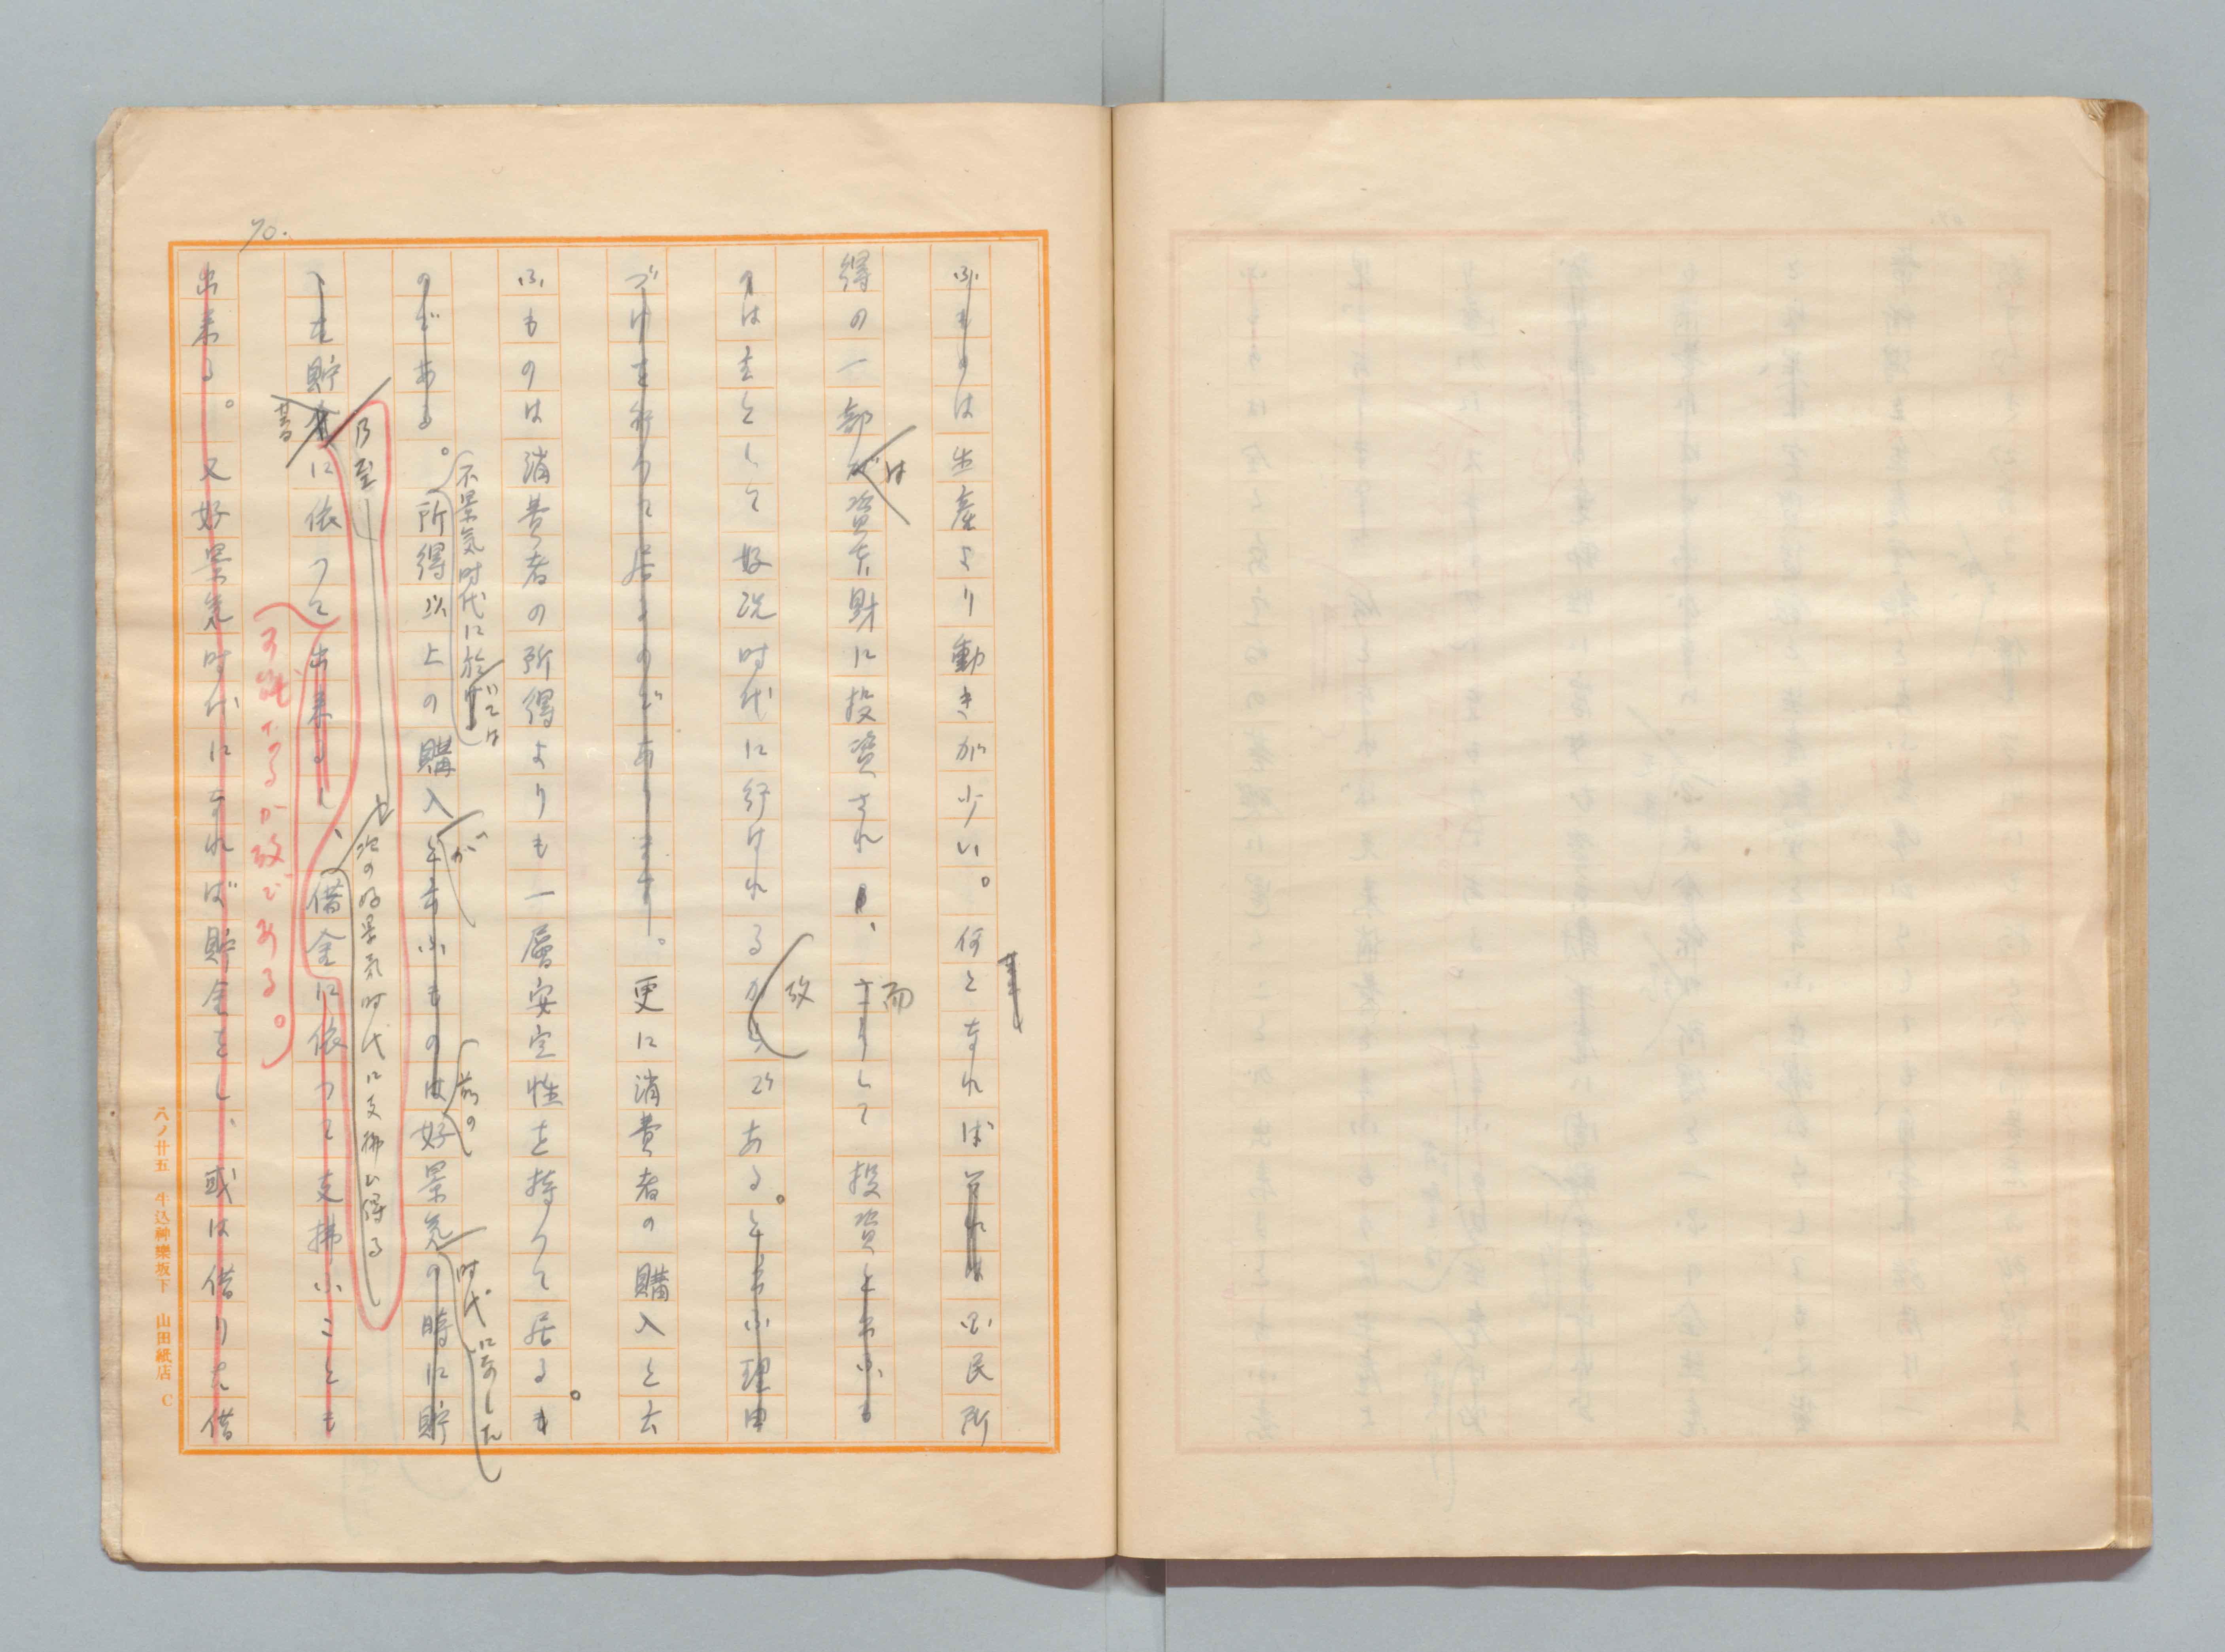 70.
ふものは生産より動きが少い。何となればそれは国民所
得の一部が資本財に投資され、さうして投資と云ふも
は
而
のは主として好況時代に行はれるからである。と云ふ理由
故
づけを行つて居るのであります。更に消費者の購入と云
ふものは消費者の所得よりも一層安定性を持つて居るも
のである。所得以上の購入と云ふものは好景気の時に貯
不景気時代に於ける
いては
が
前の
時代になした
へた貯金に依つて出来るし、借金に依つて支拂ふことも
蓄
乃至
次の好景気時代に支拂ひ得る
出来る。又好景気時代になれば貯金をし、或は借りた借
可能なるが故である。
八ノ廿五 牛込神樂坂下 山田紙店 C